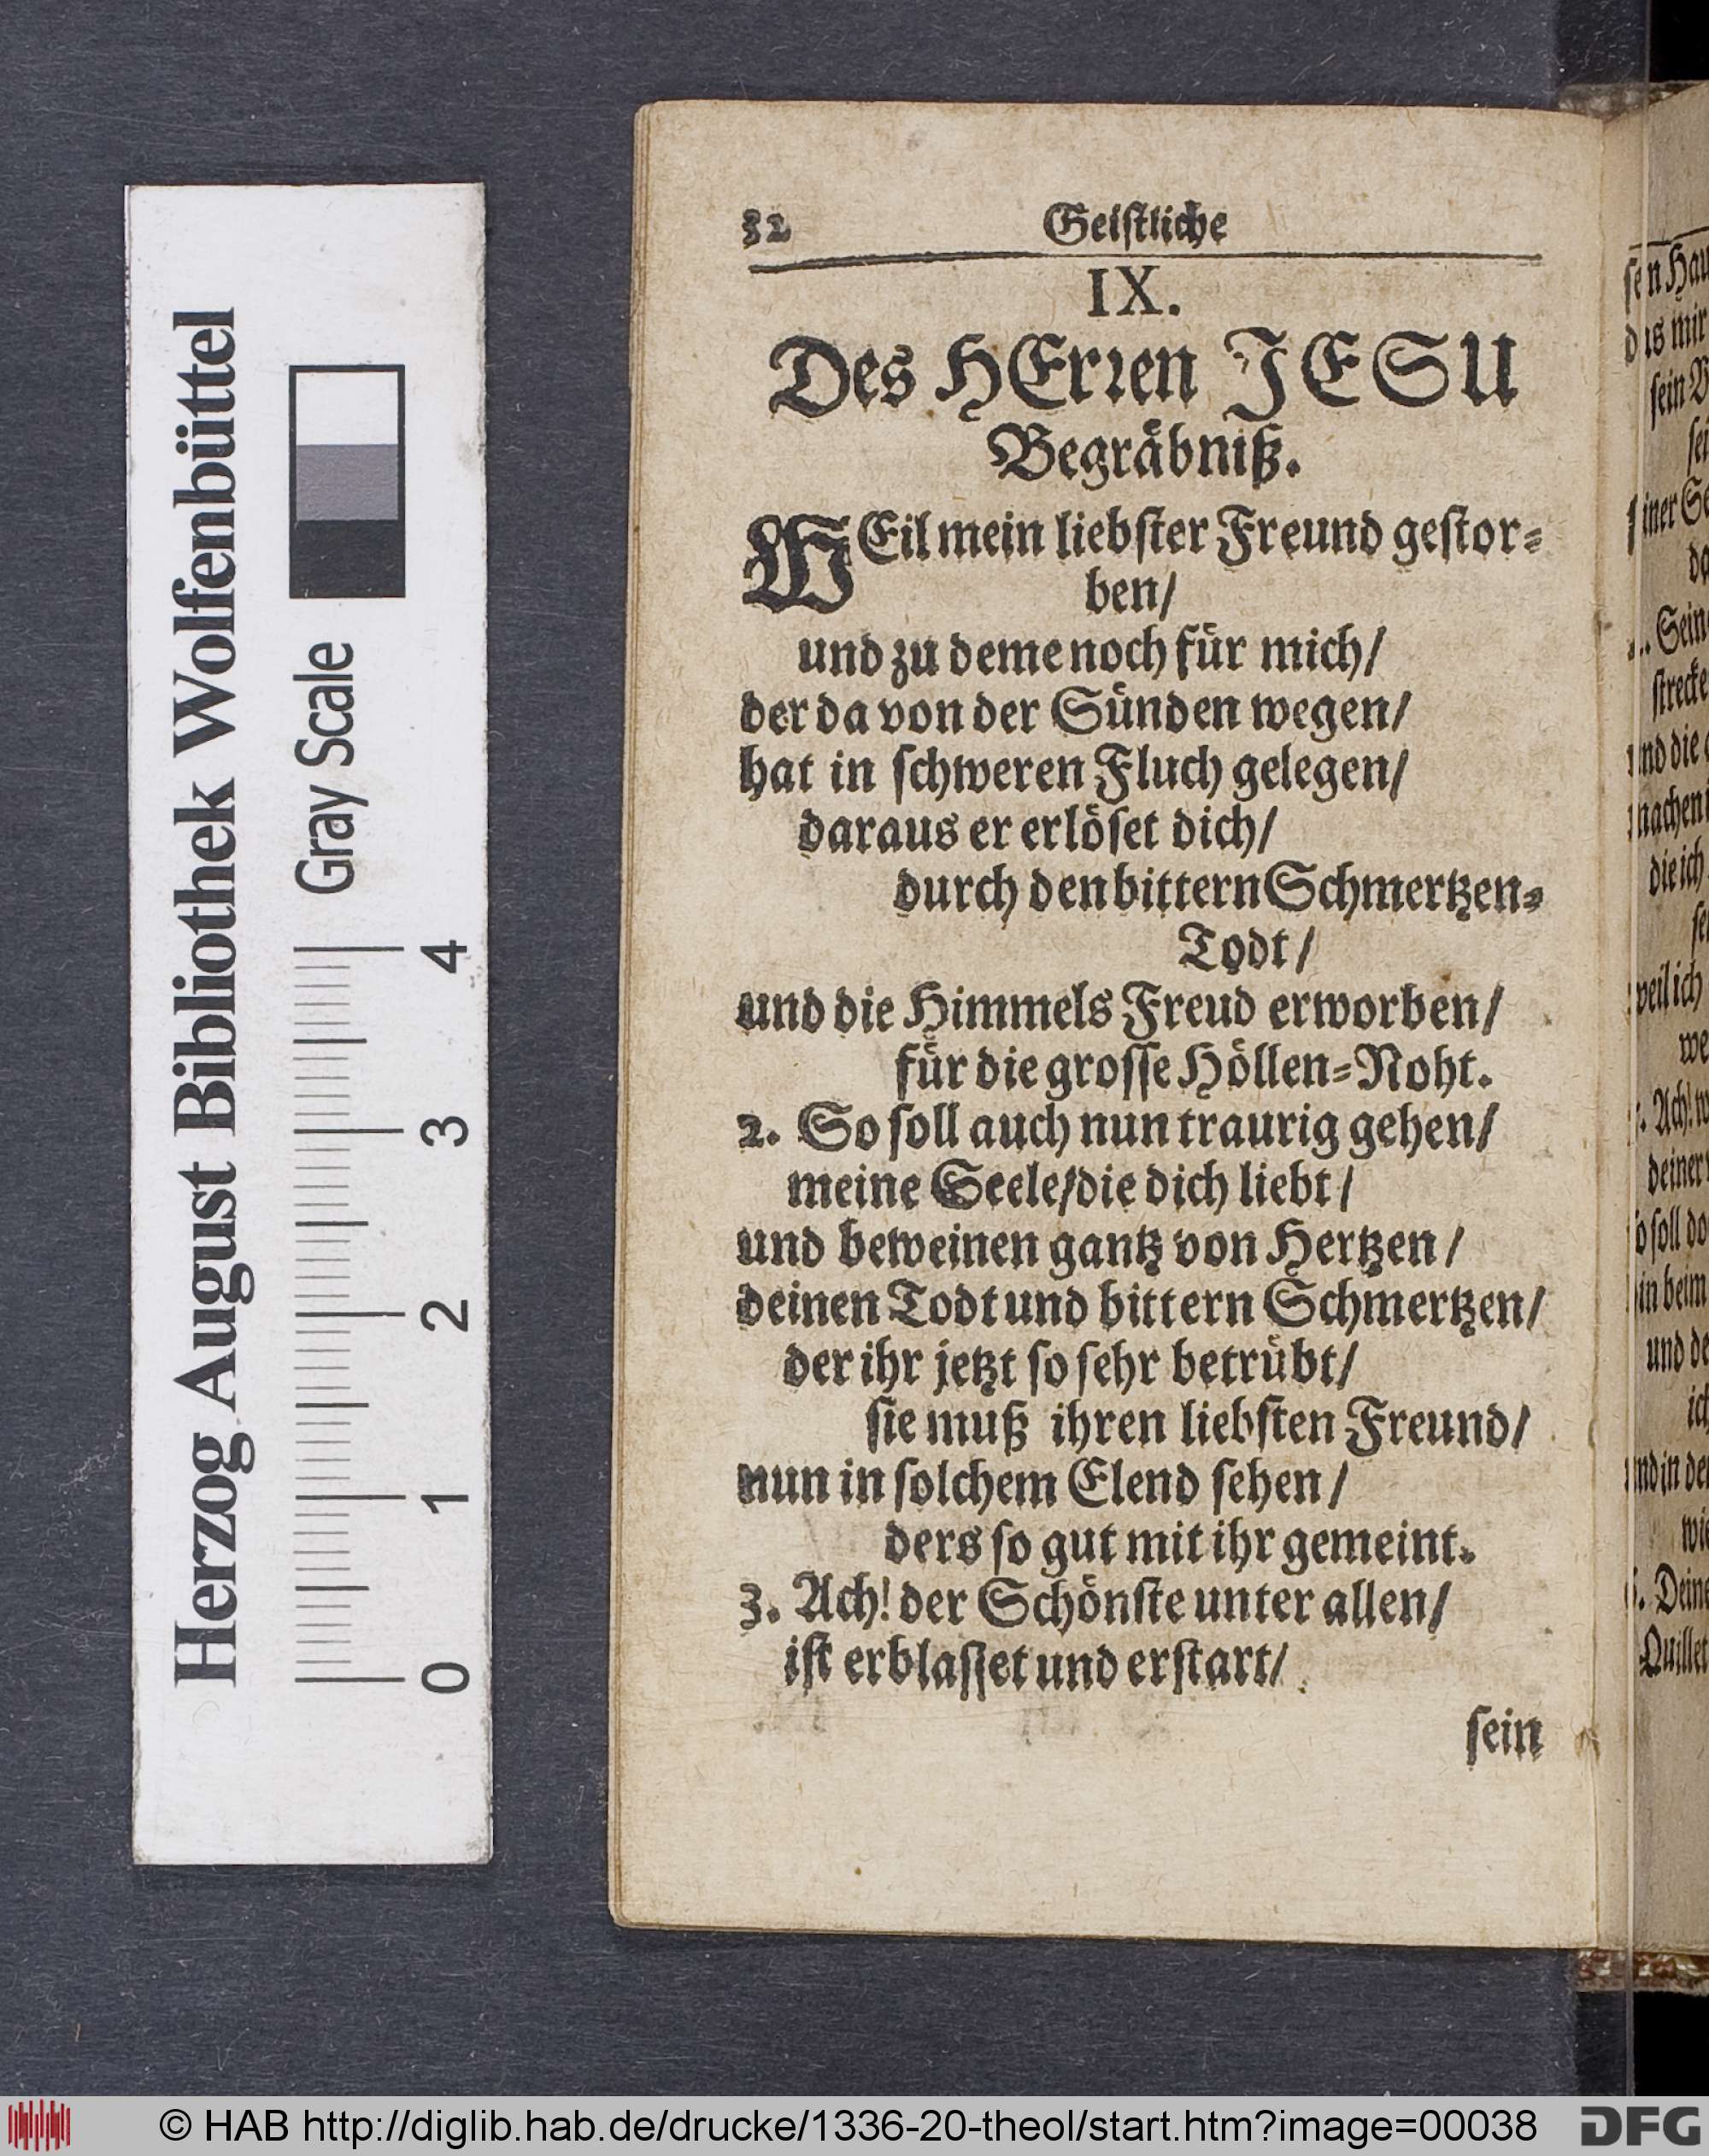 32 Geistliche
IX.
Des HErren JESU
Begräbniß.
WEil mein liebster Freund gestor-
ben/
und zu deme noch für mich/
der da von der Sünden wegen/
hat in schweren Fluch gelegen/
daraus er erlöset dich/
durch den bittern Schmertzen-
Todt/
und die Himmels Freud erworben/
für die grosse Höllen-Noht.
2. So soll auch nun traurig gehen/
meine Seele/die dich liebt/
und beweinen gantz von Hertzen/
deinen Todt und bittern Schmertzen/
der ihr jetzt so sehr betrübt/
sie muß ihren liebsten Freund/
nun in solchem Elend sehen/
ders so gut mit ihr gemeint.
3. Ach! der Schönste unter allen/
ist erblasset und erstart/
sein
Herzog August Bibliothek Wolfenbüttel
Gray Scale
0 1 2 3 4
© HAB http://diglib.hab.de/drucke/1336-20-theol/start.htm?image=00038
DFG